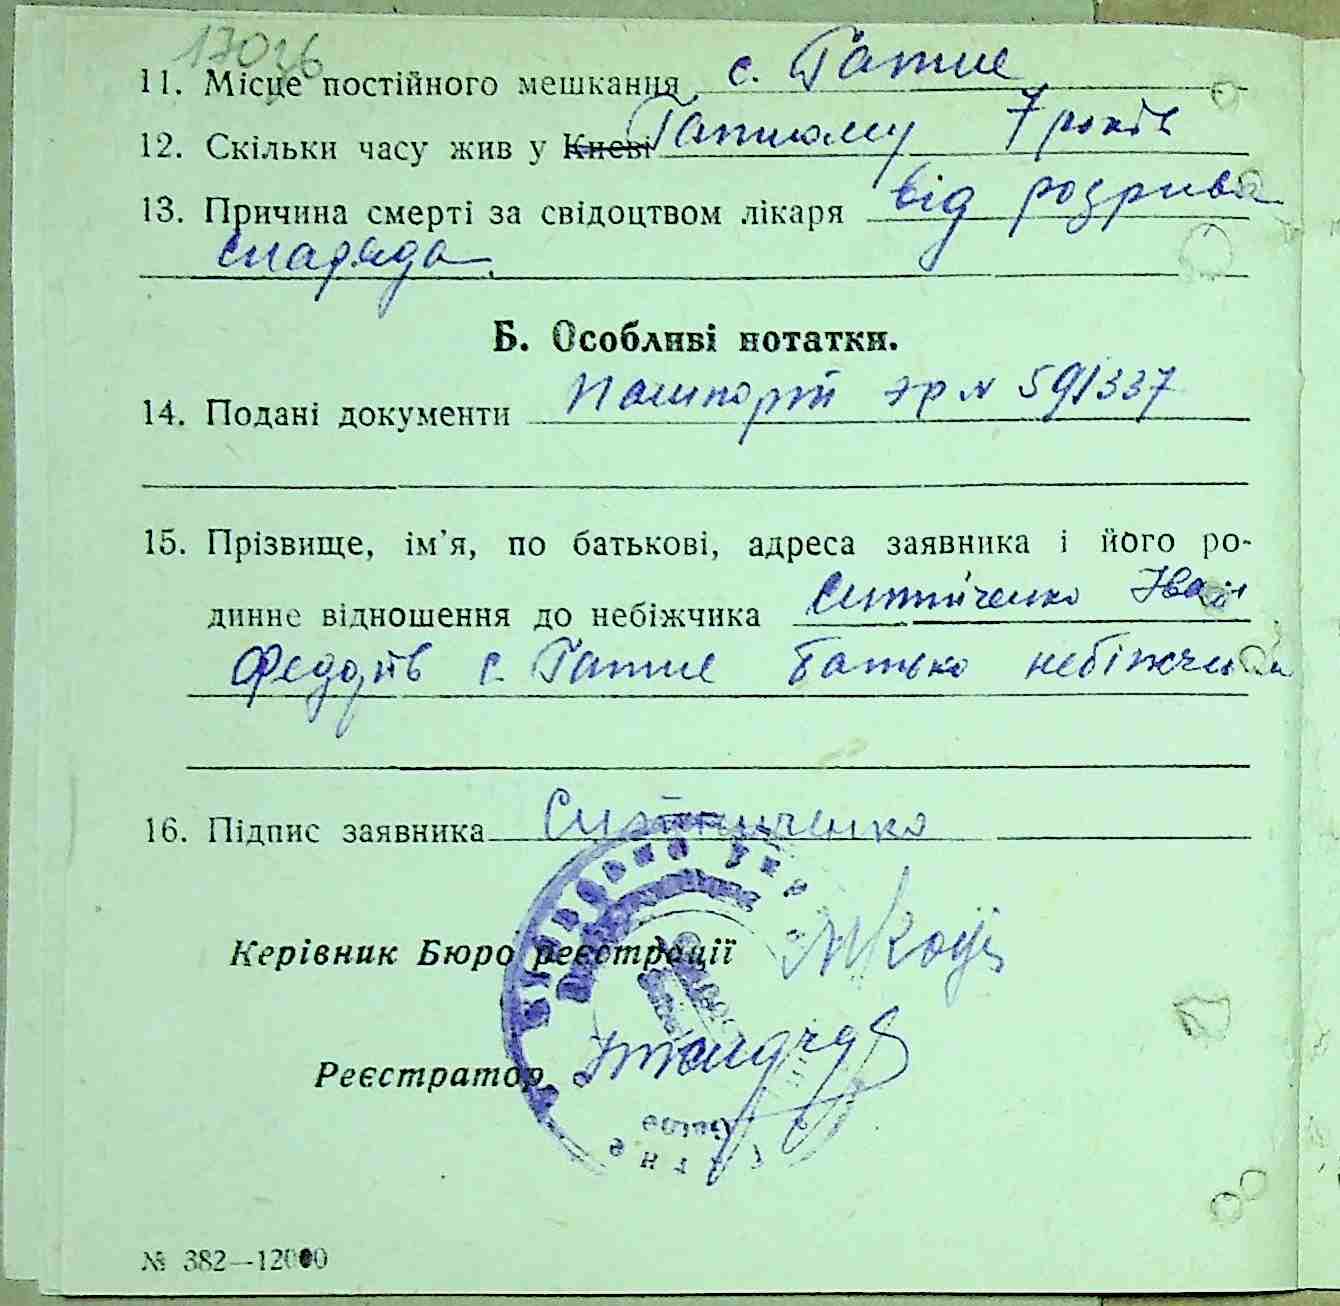 17026
11. Місце постійного мешкання с. Гатне
12. Скільки часу жив у Києві Гатному 7 років
13. Причина смерті за свідоцтвом лікаря від розрива
снаряда
Б. Особливі нотатки.
14. Подані документи Пашпорт № 591337
15. Прізвище, ім'я, по батькові, адреса заявника і його ро-
динне відношення до небіжчика Ситниченко Іван
Федорів с. Гатне батько небіжчика
16. Підпис заявника Ситниченко
Керівник Бюро реєстрації
Реєстратор
Гатне
№ 382—12000